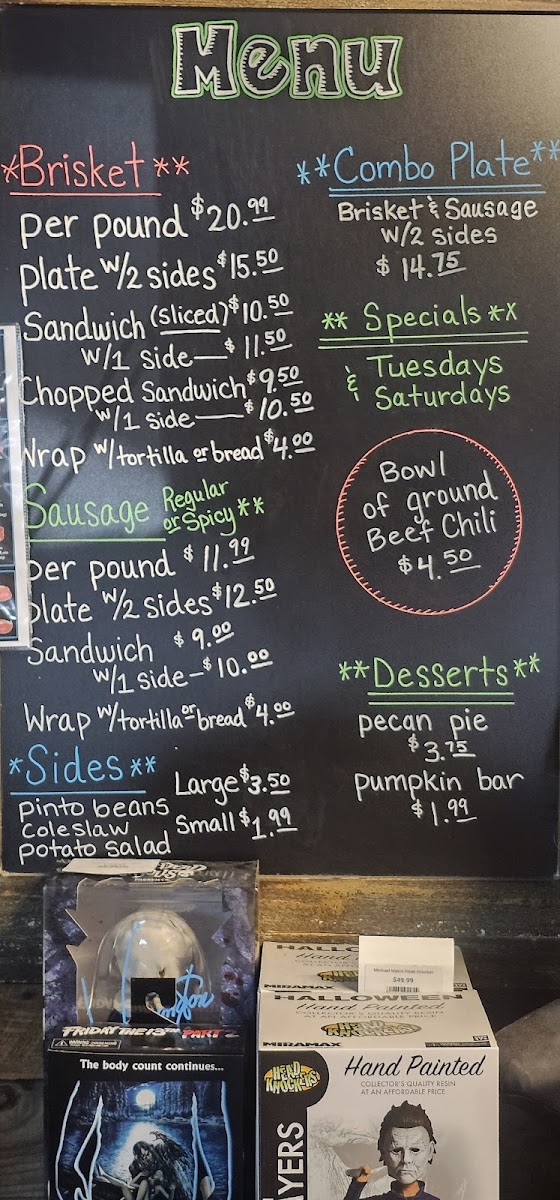 Menu
*Brisket**
per pound $20.99
plate w/2 sides $15.50
Sandwich (sliced) $10.50
w/1 side — $11.50
Chopped Sandwich $9.50
w/1 side — $10.50
Wrap w/tortilla or bread $4.00
Sausage Regular or Spicy **
per pound $11.99
plate w/2 sides $12.50
Sandwich $9.00
w/1 side - $10.00
Wrap w/tortilla or bread $4.00
*Sides**
pinto beans
coleslaw
potato salad
Large $3.50
Small $1.99
**Combo Plate**
Brisket & Sausage
w/2 sides
$14.75
** Specials **
Tuesdays
& Saturdays
Bowl
of ground
Beef Chili
$4.50
**Desserts**
pecan pie
$3.75
pumpkin bar
$1.99
FRIDAY THE 13TH PART 2
The body count continues...
HALLOWEEN
Hand Painted
MIRAMAX
$49.99
HALLOWEEN
Hand Painted
COLLECTOR'S QUALITY RESIN
AT AN AFFORDABLE PRICE
HEAD KNOCKERS
MIRAMAX
HEAD KNOCKERS
Hand Painted
COLLECTOR'S QUALITY RESIN
AT AN AFFORDABLE PRICE
YERS